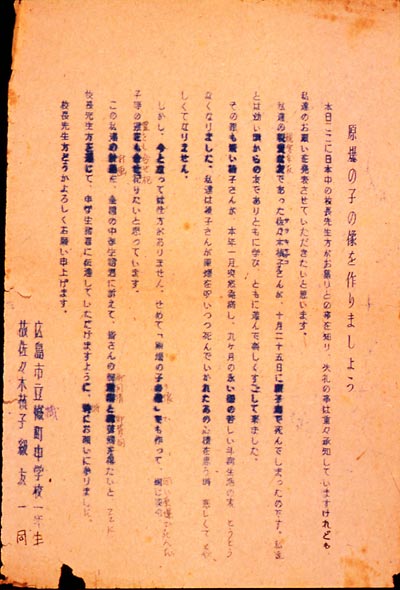 原爆の子の像を作りましょう
本日ここに日本中の校長先生方がお集りとの事を知り 失礼の事は重々承知していますけれども、
私達のお願いを発表させていただきたいと思います。
私達の親友であった佐々木禎子さんが、十月二十五日に原子病で死んでしまったのです。禎子
とは幼い頃からの友でありともに学び ともに遊んで楽しくすごして来ました。
その罪も無い禎子さんが、本年一月突然発病し、九ヶ月の永い間の苦しい年病生活の末、とうとう
なくなりました。私達は禎子さんが原爆を呪いつつ死んでいかれたあの心情を思う時 悲しくて
しくてなりません。
しかし、今となっては仕方がありません、せめて「原爆の子の像」でも作って、同じ
子等の霊をも慰めたいと思っています。
この私達の計画を 全国の中学生諸君に訴えて、皆さんの
校長先生方を通じて、中学生諸君に伝達していただけますように、特にお願いに参りました。
校長先生方どうかよろしくお願い申上げます。
広島市立幟町中学校一年生
故佐々木禎子 級友一同